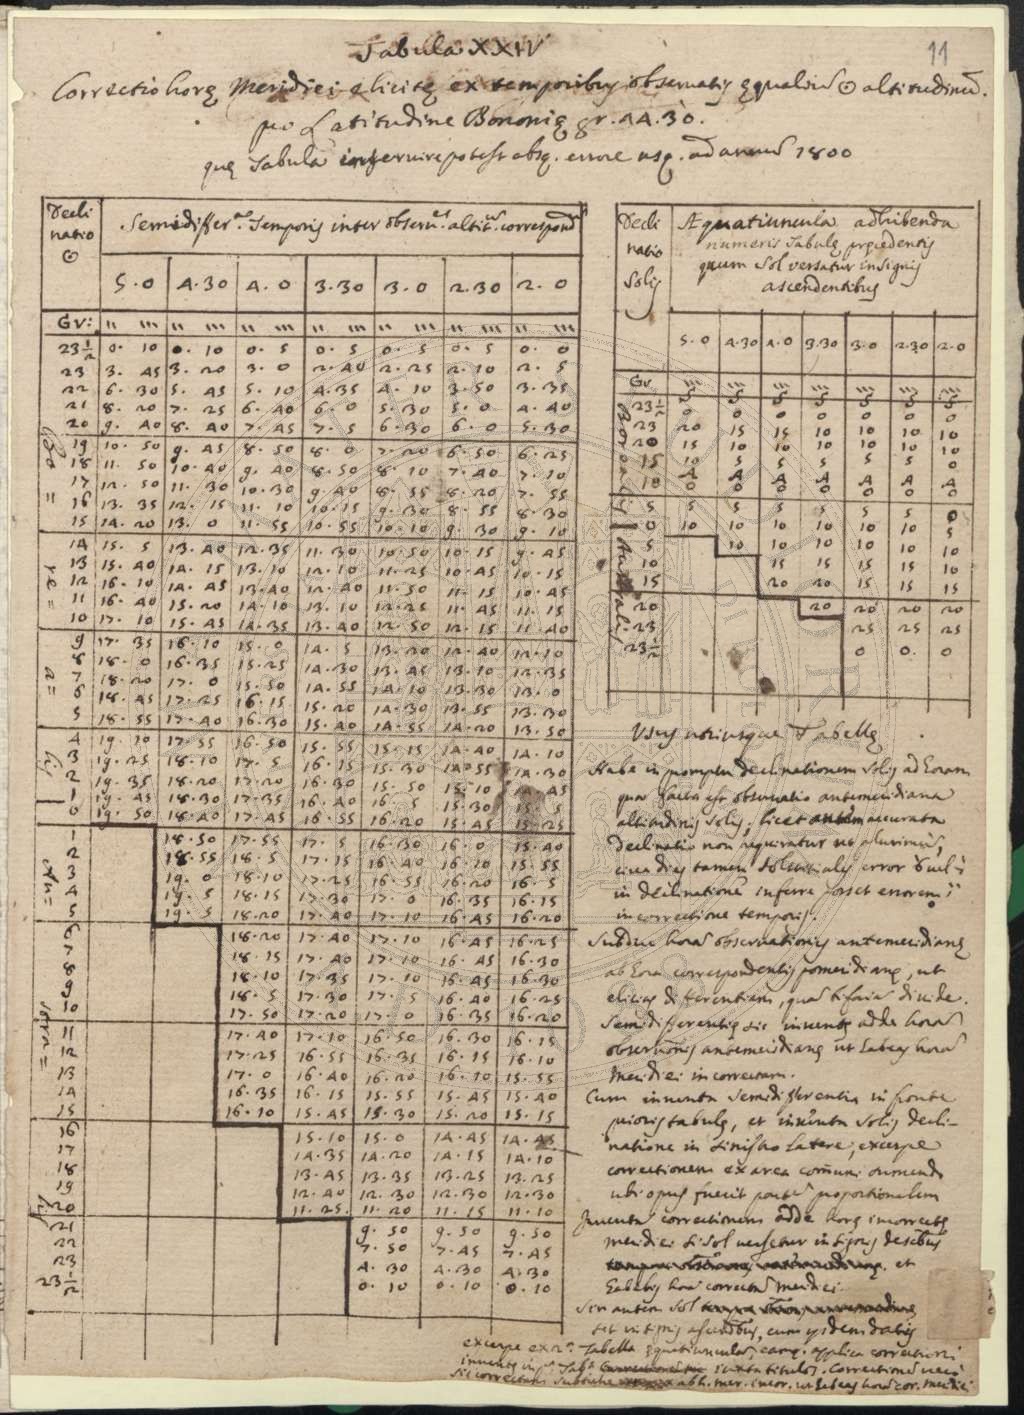 11
Tabula XXIV
Correctio horę Meridiei elicitę ex temporibus observatis ęqualiu ☉ altitudinu.
pro Latitudine Bononię gr. 44. 30.
quę Tabula inservire potest absq. errore usq. ad annu 1800
Decli
natio
☉
Semidiffer. Temporis inter observ. altit. correspond
5.0 4.30 4.0 3.30 3.0 2.30 2.0
Gr: '' ''' '' ''' '' ''' '' ''' '' ''' '' ''' '' '''
23½ 0. 10 0. 10 0. 5 0. 5 0. 5 0. 5 0. 0
23 3. 45 3. 20 3. 0 2. 40 2. 25 2. 10 2. 5
22 6. 30 5. 45 5. 10 4. 35 4. 10 3. 50 3. 35
21 8. 20 7. 25 6. 40 6. 0 5. 30 5. 0 4. 40
20 9. 40 8. 40 7. 45 7. 5 6. 30 6. 0 5. 30
19 10. 50 9. 45 8. 50 8. 0 7. 20 6. 50 6. 25
18 11. 50 10. 40 9. 40 8. 50 8. 10 7. 40 7. 10
17 12. 50 11. 30 10. 30 9. 40 8. 55 8. 20 7. 55
16 13. 35 12. 15 11. 10 10. 15 9. 30 8. 55 8. 30
15 14. 20 13. 0 11. 55 10. 55 10. 10 9. 30 9. 10
14 15. 5 13. 40 12. 35 11. 30 10. 50 10. 15 9. 45
13 15. 40 14. 15 13. 10 12. 10 11. 25 10. 45 10. 15
12 16. 10 14. 45 13. 40 12. 40 11. 50 11. 15 10. 45
11 16. 40 15. 20 14. 10 13. 10 12. 25 11. 45 11. 15
10 17. 10 15. 45 14. 35 13. 40 12. 50 12. 15 11. 40
9 17. 35 16. 10 15. 0 14. 5 13. 20 12. 40 12. 10
8 18. 0 16. 35 15. 25 14. 30 13. 45 13. 10 12. 35
7 18. 20 17. 0 15. 50 14. 55 14. 10 13. 30 13. 0
6 18. 45 17. 25 16. 15 15. 20 14. 30 13. 55 13. 30
5 18. 55 17. 40 16. 30 15. 40 14. 55 14. 20 13. 50
4 19. 10 17. 55 16. 50 15. 55 15. 15 14. 40 14. 10
3 19. 25 18. 10 17. 5 16. 15 15. 30 14. 55 14. 30
2 19. 35 18. 20 17. 20 16. 30 15. 50 15. 10 14. 45
1 19. 45 18. 30 17. 35 16. 40 16. 5 15. 30 15. 5
0 19. 50 18. 40 17. 45 16. 55 16. 20 15. 45 15. 25
1 18. 50 17. 55 17. 5 16. 30 16. 0 15. 40
2 18. 55 18. 5 17. 15 16. 40 16. 10 15. 55
3 19. 0 18. 10 17. 25 16. 55 16. 20 16. 5
4 19. 5 18. 15 17. 30 17. 0 16. 35 16. 15
5 19. 5 18. 20 17. 40 17. 10 16. 45 16. 20
6 18. 20 17. 40 17. 10 16. 45 16. 25
7 18. 15 17. 40 17. 10 16. 45 16. 30
8 18. 10 17. 35 17. 10 16. 45 16. 30
9 18. 5 17. 30 17. 5 16. 40 16. 25
10 17. 50 17. 20 17. 0 16. 35 16. 20
11 17. 40 17. 10 16. 50 16. 30 16. 15
12 17. 25 16. 55 16. 35 16. 15 16. 10
13 17. 0 16. 40 16. 20 16. 10 15. 55
14 16. 35 16. 15 15. 55 15. 45 15. 40
15 16. 10 15. 45 15. 30 15. 20 15. 15
16 15. 10 15. 0 14. 45 14. 45
17 14. 35 14. 20 14. 15 14. 10
18 13. 45 13. 35 13. 25 13. 25
19 12. 40 12. 30 12. 30 12. 30
20 11. 25 11. 20 11. 15 11. 10
21 9. 50 9. 50 9. 50
22 7. 50 7. 45 7. 45
23 4. 30 4. 30 4. 30
23½ 0. 10 0. 10 0. 10
Bo=
re=
a=
lis
Au=
stra=
lis
Decli
natio
Solis
Æquatiuncula adhibenda
numeris Tabulę pręcedentis
quum Sol versatur in signis
ascendentibus
5.0 4.30 4.0 3.30 3.0 2.30 2.0
Gr. ''' ''' ''' ''' ''' ''' '''
23½ 5 5 5 5 5 5 5
0 0 0 0 0 0 0
23 20 15 15 10 10 10 10
20 15 10 10 10 10 10 10
15 10 5 5 5 5 5 0
10 A A A A A A A
0 0 0 0 0 0 0
5 5 5 5 5 5 5 0
0 10 10 10 10 10 10 5
5 10 10 10 10 10 10
10 15 15 15 15 10
15 20 20 15 15 15
20 20 20 20 20
23 25 25 25
23½ 0 0. 0
Borealis
Australis
Usus utriusque Tabellę
Habe in promptu declinationem Solis ad horam
qua facta est observatio antemeridiana
altitudinis Solis; licet autem accurata
declinatio non requiratur ut plurimu,
circa dies tamen solstitiales error
in declinatione inferre posset errorem 1''
in correctione temporis.
Subduc hora observationis antemeridianę
ab hora correspondentis pomeridianę, ut
elicias differentiam, qua bifaria divide.
Semidifferentię sic inventę adde hora
observationis antemeridianę ut habeas hora
Meridiei incorrectam.
Cum inventa semidifferentia in fronte
prioris tabulę, et inventa Solis decli-
natione in sinistro latere, excerpe
correctionem ex area communi sumendo
ubi opus fuerit parte proportionalem
Inventa correctionem adde horę incorrectę
meridiei si Sol versetur in signis descendentibus
et
habebis hora correcta meridiei.
Si autem Sol
sit in signis ascendentibus, cum ijsdem datis
excerpe ex 2ª. Tabella ęquatiuncula, eamq. applica correctioni
inventę in pª. Tabª. iuxta titulos. Correctione vero
sic correctam subtrahe ab h. mer. incor. ut habeas hora cor. meridiei